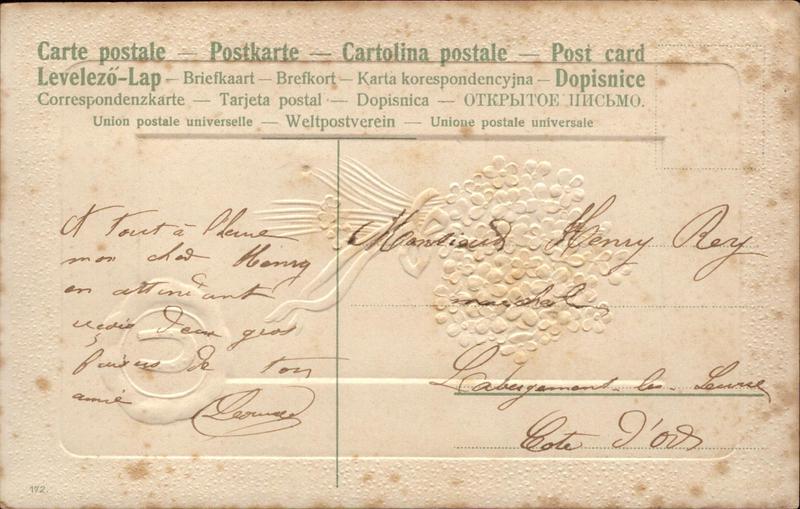 Carte postale — Postkarte — Cartolina postale — Post card
Levelező-Lap — Briefkaart — Brefkort — Karta korespondencyjna — Dopisnice
Correspondenzkarte — Tarjeta postal — Dopisnica — ОТКРЫТОЕ ПИСЬМО.
Union postale universelle — Weltpostverein — Unione postale universale
A tout à l'heure
mon cher Henry
en attendant
reçois deux gros
baisers de ton
amie
Monsieur Henry Rey
maréchal
Labergement-les-Seurre
Cote d'Or
172.